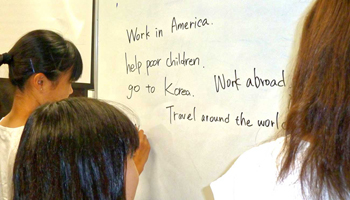 Work in America.
help poor children.
go to Korea.
Work abroad
Travel around the world